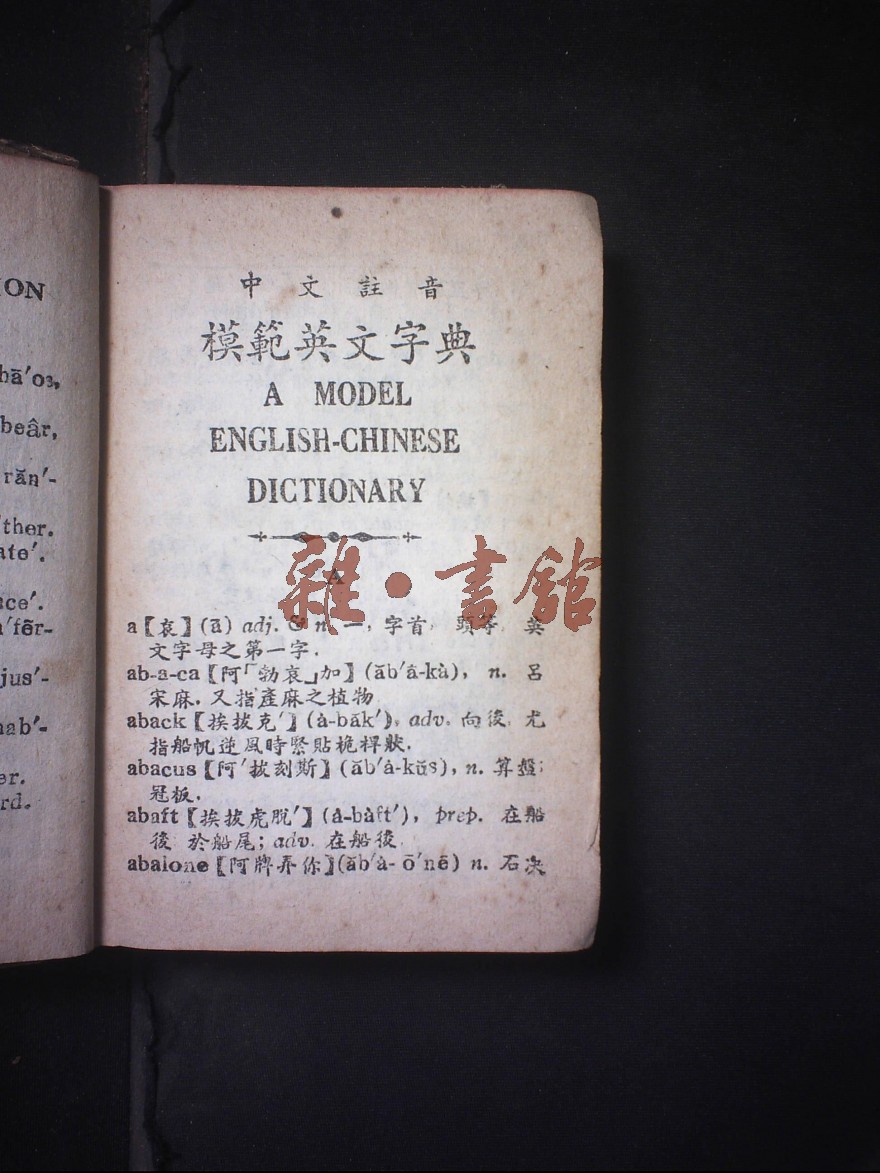 ION
bā′os,
beâr,
răn′-
′ther.
ate′.
nce′.
′fẽr-
jus′-
nab′-
er.
rd.
中文註音
模範英文字典
A MODEL
ENGLISH-CHINESE
DICTIONARY
A
雜·書館
a【哀】(ā) adj. & n. 一, 字首, 頭等, 英
文字母之第一字.
ab-a-ca【阿「勃哀」加】(ăb′à-kà), n. 呂
宋麻, 又指產麻之植物
aback【挨拔克′】(à-băk′), adv. 向後, 尤
指船帆逆風時緊貼桅桿狀.
abacus【阿′拔刻斯】(ăb′à-kŭs), n. 算盤;
冠板.
abaft【挨拔虎脫′】(à-bàft′), prep. 在船
後 於船尾; adv. 在船後
abalone【阿牌弄你】(ăb′à-ō′nē) n. 石决